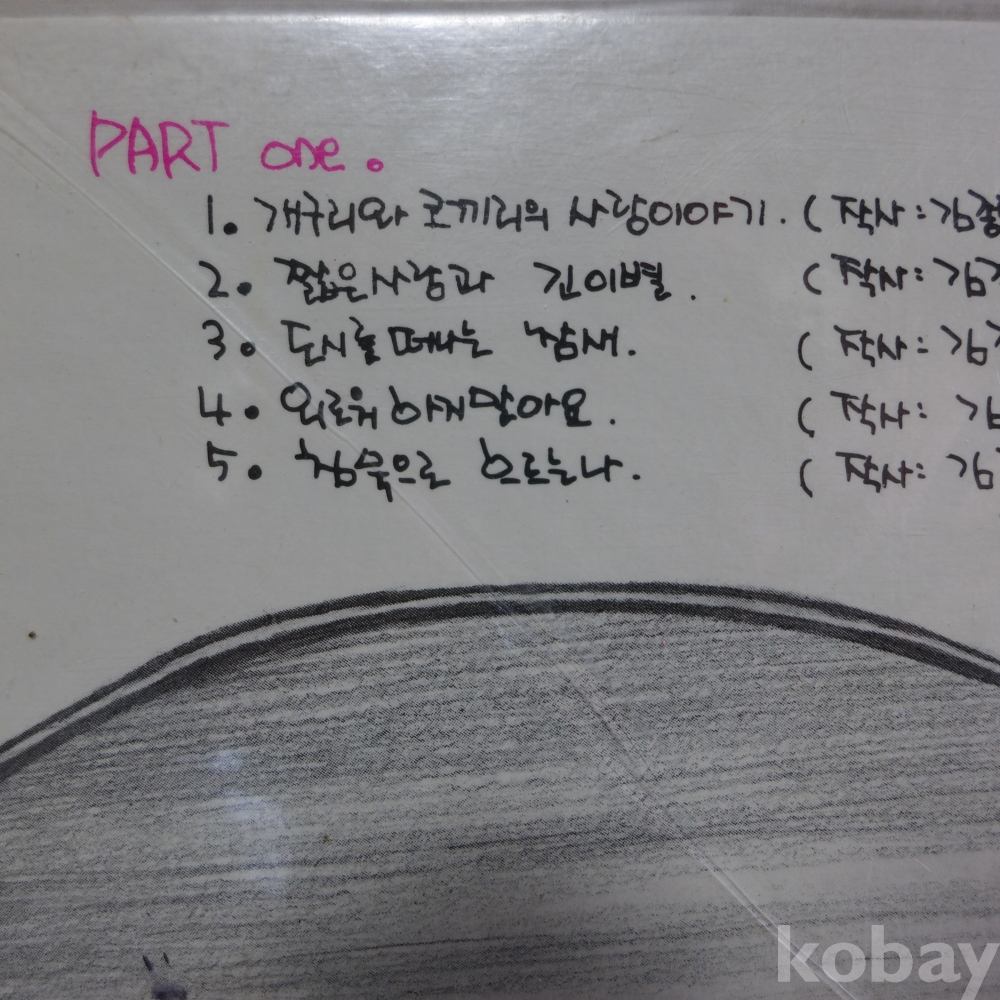 PART one.
1. 개구리와 코끼리의 사랑이야기. ( 작사: 김종
2. 짧은사랑과 긴이별. ( 작사: 김
3. 도시를떠나는 참새. ( 작사: 김
4. 외로워하지말아요. ( 작사: 김
5. 침묵으로 흐르는나. ( 작사: 김
kobay